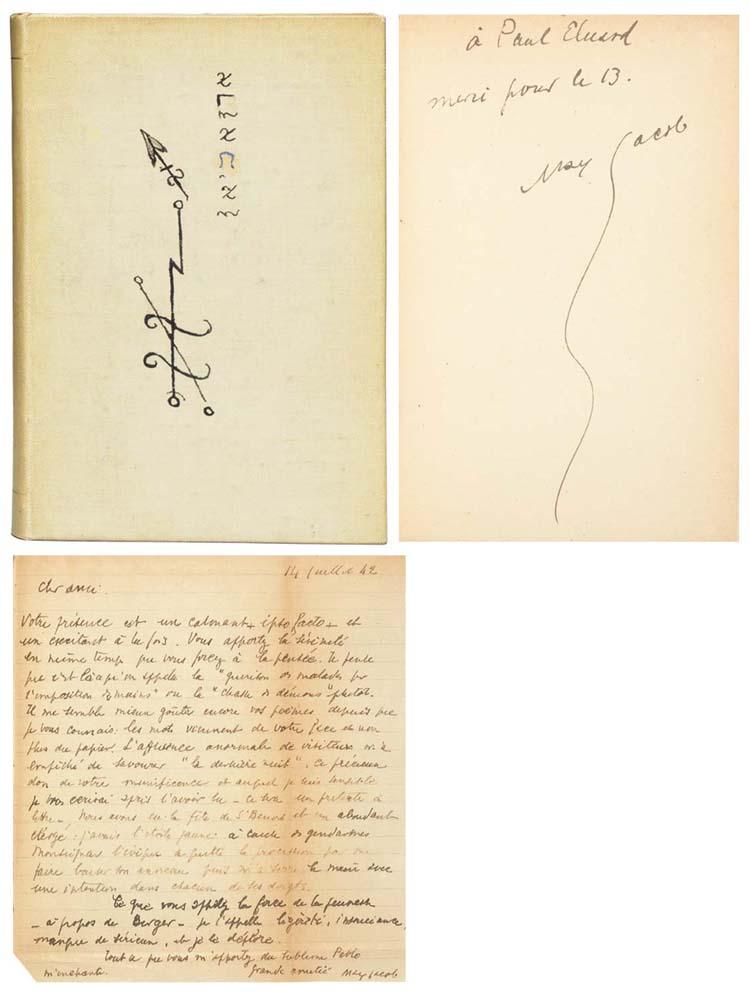 à Paul Eluard
merci pour le 13.
Max Jacob
14 juillet 42
Cher ami:
Votre présence est un calmant ipso facto et
un excitant à la fois. Vous apportez la sérénité
en même temps que vous forcez à la pensée. Je pense
que c'est là qu'on appela la "guérison des malades par
l'imposition des mains" ou la "chasse des démons"
Il me semble mieux goûter encore vos poèmes depuis que
je vous connais: les mots viennent de votre face et non
plus du papier. L'affluence anormale de visiteurs m'a
empêché de savourer "la dernière nuit". ce précieux
don de votre munificence et auquel je suis sensible
je vous écrirai après l'avoir lu - ce sera un prétexte à
lettre -, Nous avons eu la fête de St Benoit et un abondant
clergé: j'avais l'étoile jaune à cause des gendarmes
Monseigneur l'évêque a quitté la procession pour me
faire baiser son anneau puis m'a serré la main avec
une intention dans chacun de ses doigts.
Ce que vous appelez la force de la jeunesse
- à propos de Berger - je l'appelle légèreté, insouciance,
manque de sérieux, et je le déplore.
Tout ce que vous m'apportez du sublime Pablo
m'enchante. Grande amitié Max Jacob